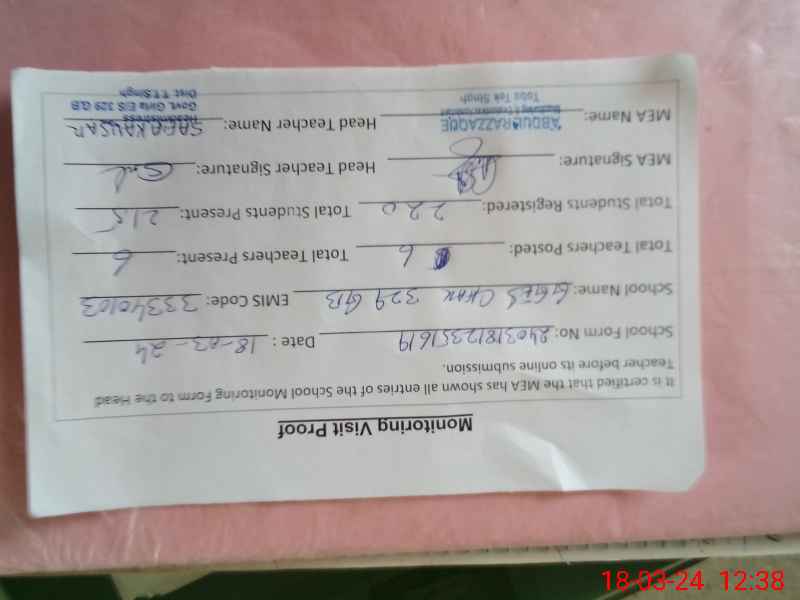 Monitoring Visit Proof
It is certified that the MEA has shown all entries of the School Monitoring Form to the Head
Teacher before its online submission.
School Form No: 24031812351619 Date : 18-03-24
School Name: GGES Chak 329 GB EMIS Code: 33340103
Total Teachers Posted: 6 Total Teachers Present: 6
Total Students Registered: 220 Total Students Present: 215
MEA Signature: Head Teacher Signature:
MEA Name: ABDUL RAZZAQUE Head Teacher Name: SAFA KAUSAR
Toba Tek Singh
Headmistress
Govt. Girls E/S 329 G.B
Dist T.T.Singh
18-03-24 12:38